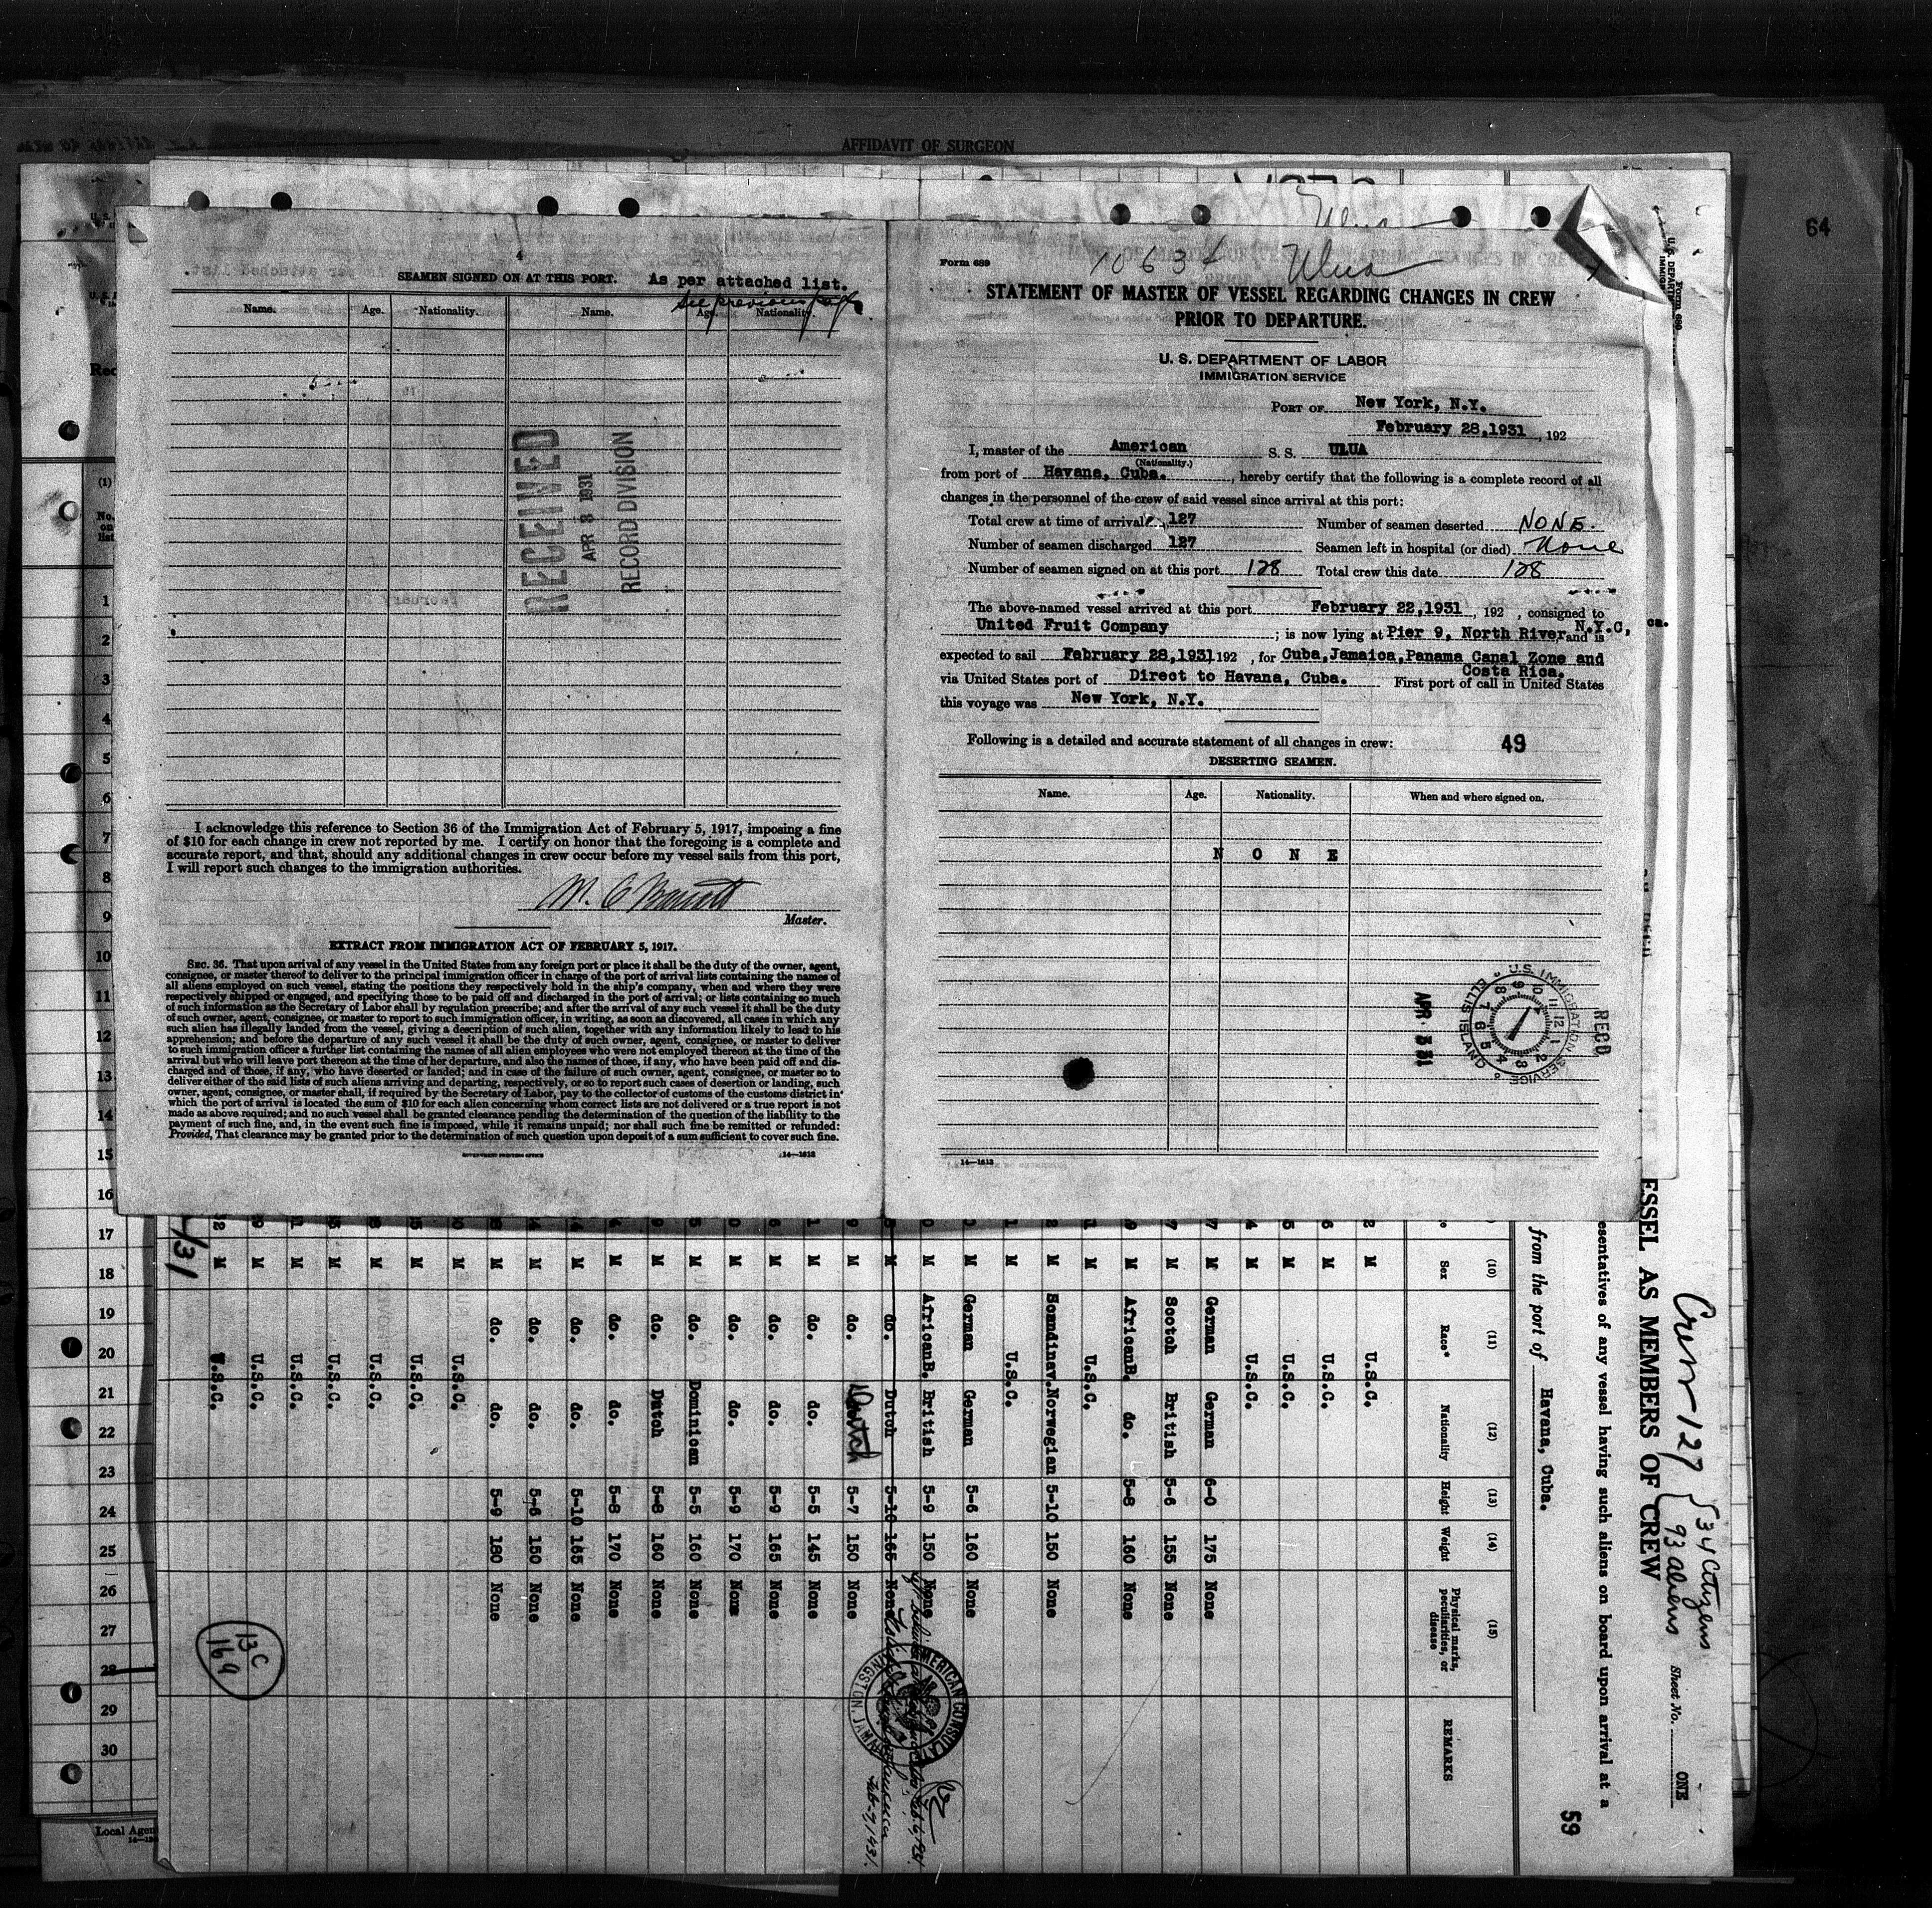 AFFIDAVIT OF SURGEON
64
SEAMEN SIGNED ON AT THIS PORT. As per attached list.
See previous page
Name. Age. Nationality. Name. Age. Nationality.
RECEIVED
APR 3 1931
RECORD DIVISION
I acknowledge this reference to Section 36 of the Immigration Act of February 5, 1917, imposing a fine
of $10 for each change in crew not reported by me. I certify on honor that the foregoing is a complete and
accurate report, and that, should any additional changes in crew occur before my vessel sails from this port,
I will report such changes to the immigration authorities.
Master.
EXTRACT FROM IMMIGRATION ACT OF FEBRUARY 5, 1917.
SEC. 36. That upon arrival of any vessel in the United States from any foreign port or place it shall be the duty of the owner, agent,
consignee, or master thereof to deliver to the principal immigration officer in charge of the port of arrival lists containing the names of
all aliens employed on such vessel, stating the positions they respectively hold in the ship's company, when and where they were
respectively shipped or engaged, and specifying those to be paid off and discharged in the port of arrival; or lists containing so much
of such information as the Secretary of Labor shall by regulation prescribe; and after the arrival of any such vessel it shall be the duty
of such owner, agent, consignee, or master to report to such immigration officer, in writing, as soon as discovered, all cases in which any
such alien has illegally landed from the vessel, giving a description of such alien, together with any information likely to lead to his
apprehension; and before the departure of any such vessel it shall be the duty of such owner, agent, consignee, or master to deliver
to such immigration officer a further list containing the names of all alien employees who were not employed thereon at the time of the
arrival but who will leave port thereon at the time of her departure, and also the names of those, if any, who have been paid off and dis-
charged and of those, if any, who have deserted or landed; and in case of the failure of such owner, agent, consignee, or master so to
deliver either of the said lists of such aliens arriving and departing, respectively, or so to report such cases of desertion or landing, such
owner, agent, consignee, or master shall, if required by the Secretary of Labor, pay to the collector of customs of the customs district in
which the port of arrival is located the sum of $10 for each alien concerning whom correct lists are not delivered or a true report is not
made as above required; and no such vessel shall be granted clearance pending the determination of the question of the liability to the
payment of such fine, and, in the event such fine is imposed, while it remains unpaid; nor shall such fine be remitted or refunded:
Provided, That clearance may be granted prior to the determination of such question upon deposit of a sum sufficient to cover such fine.
GOVERNMENT PRINTING OFFICE 14—1612
Form 689
Ulua
STATEMENT OF MASTER OF VESSEL REGARDING CHANGES IN CREW
PRIOR TO DEPARTURE.
U. S. DEPARTMENT OF LABOR
IMMIGRATION SERVICE
PORT OF New York, N.Y.
February 28,1931, 192
I, master of the American S. S. ULUA
(Nationality.)
from port of Havana, Cuba., hereby certify that the following is a complete record of all
changes in the personnel of the crew of said vessel since arrival at this port:
Total crew at time of arrival 127 Number of seamen deserted NONE.
Number of seamen discharged 127 Seamen left in hospital (or died) None
Number of seamen signed on at this port 128 Total crew this date 128
The above-named vessel arrived at this port February 22,1931, 192 , consigned to
United Fruit Company; is now lying at Pier 9, North River N.Y.C, and is
expected to sail February 28,1931 192 , for Cuba,Jamaica,Panama Canal Zone and
Costa Rica.
via United States port of Direct to Havana, Cuba. First port of call in United States
this voyage was New York, N.Y.
Following is a detailed and accurate statement of all changes in crew: 49
DESERTING SEAMEN.
Name. Age. Nationality. When and where signed on.
N O N E
RECD
U.S. IMMIGRATION SERVICE
ELLIS ISLAND
APR 3 31
14—1612
(1)
No. on list
1
2
3
4
5
6
7
8
9
10
11
12
13
14
15
16
17
18
19
20
21
22
23
24
25
26
27
28
29
30
Local Agen
Crew 127 34 Citizens
93 aliens
Sheet No. ONE
ESSEL AS MEMBERS OF CREW
esentatives of any vessel having such aliens on board upon arrival at a
from the port of Havana, Cuba.
59
(10) (11) (12) (13) (14) (15)
Sex Race* Nationality Height Weight Physical marks, peculiarities, or disease REMARKS
M U.S.C.
M U.S.C.
M U.S.C.
M U.S.C.
M German German 6-0 175 None
M Scotch British 5-6 155 None
M AfricanB. do. 5-8 160 None
M U.S.C.
M Scandinav. Norwegian 5-10 150 None
M U.S.C.
M German German 5-6 160 None
M AfricanB. British 5-9 150 None
M do. Dutch 5-10 165 None
M do. Dutch 5-7 150 None
M do. do. 5-5 145 None
M do. do. 5-9 165 None
M do. do. 5-9 170 None
M do. Dominican 5-5 160 None
M do. Dutch 5-8 160 None
M do. do. 5-8 170 None
M do. do. 5-10 165 None
M do. do. 5-6 150 None
M do. do. 5-9 180 None
M U.S.C.
M U.S.C.
M U.S.C.
M U.S.C.
M U.S.C.
M U.S.C.
M U.S.C.
AMERICAN CONSULATE
KINGSTON, JAMAICA
13C
169